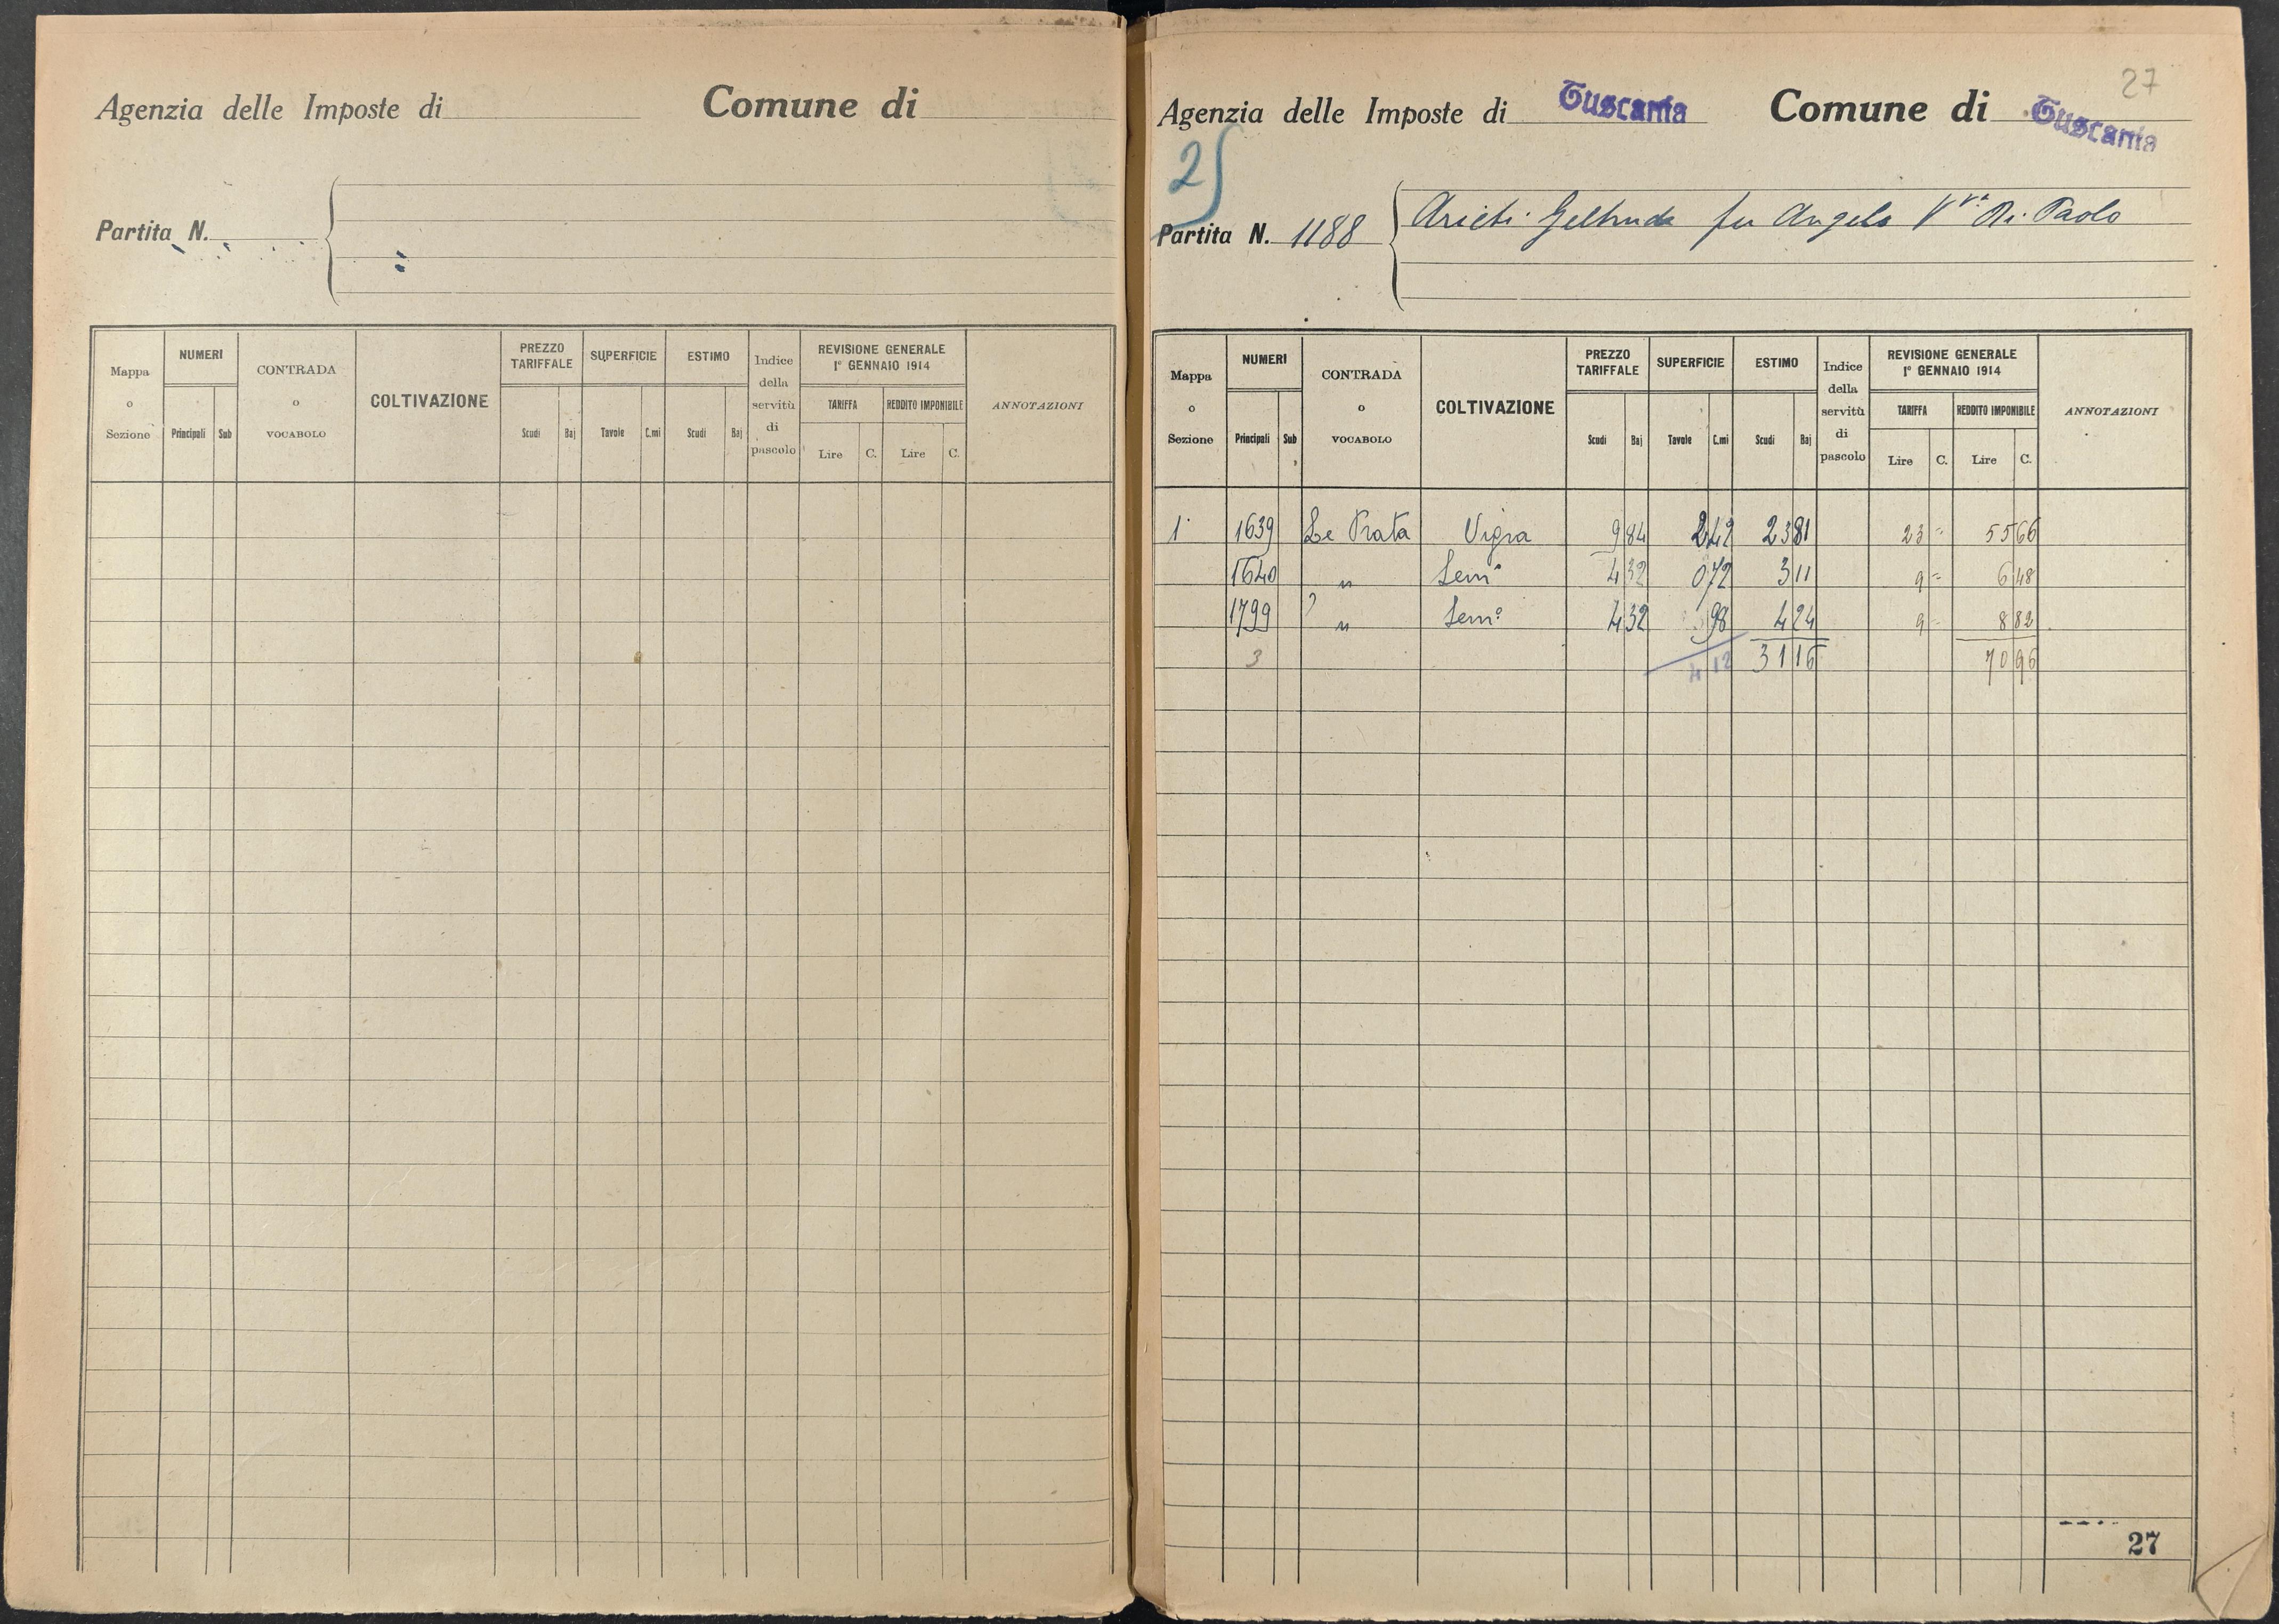 Agenzia delle Imposte di Comune di
Partita N.
Mappa o Sezione NUMERI Principali Sub CONTRADA o VOCABOLO COLTIVAZIONE PREZZO TARIFFALE Scudi Baj SUPERFICIE Tavole C.mi ESTIMO Scudi Baj Indice della servitù di pascolo REVISIONE GENERALE 1º GENNAIO 1914 TARIFFA Lire C. REDDITO IMPONIBILE Lire C. ANNOTAZIONI
27
Agenzia delle Imposte di Tuscania Comune di Tuscania
25
Partita N. 1188 Arieti Geltruda fu Angelo Vva Di Paolo
Mappa o Sezione NUMERI Principali Sub CONTRADA o VOCABOLO COLTIVAZIONE PREZZO TARIFFALE Scudi Baj SUPERFICIE Tavole C.mi ESTIMO Scudi Baj Indice della servitù di pascolo REVISIONE GENERALE 1º GENNAIO 1914 TARIFFA Lire C. REDDITO IMPONIBILE Lire C. ANNOTAZIONI
1 1639 Le Prata Vigna 9 84 2 42 23 81 23 - 55 66
1640 " Semo 4 32 0 72 3 11 9 = 6 48
1799 " Semo 4 32 98 4 24 9 - 8 82
3 4 12 31 16 70 96
27